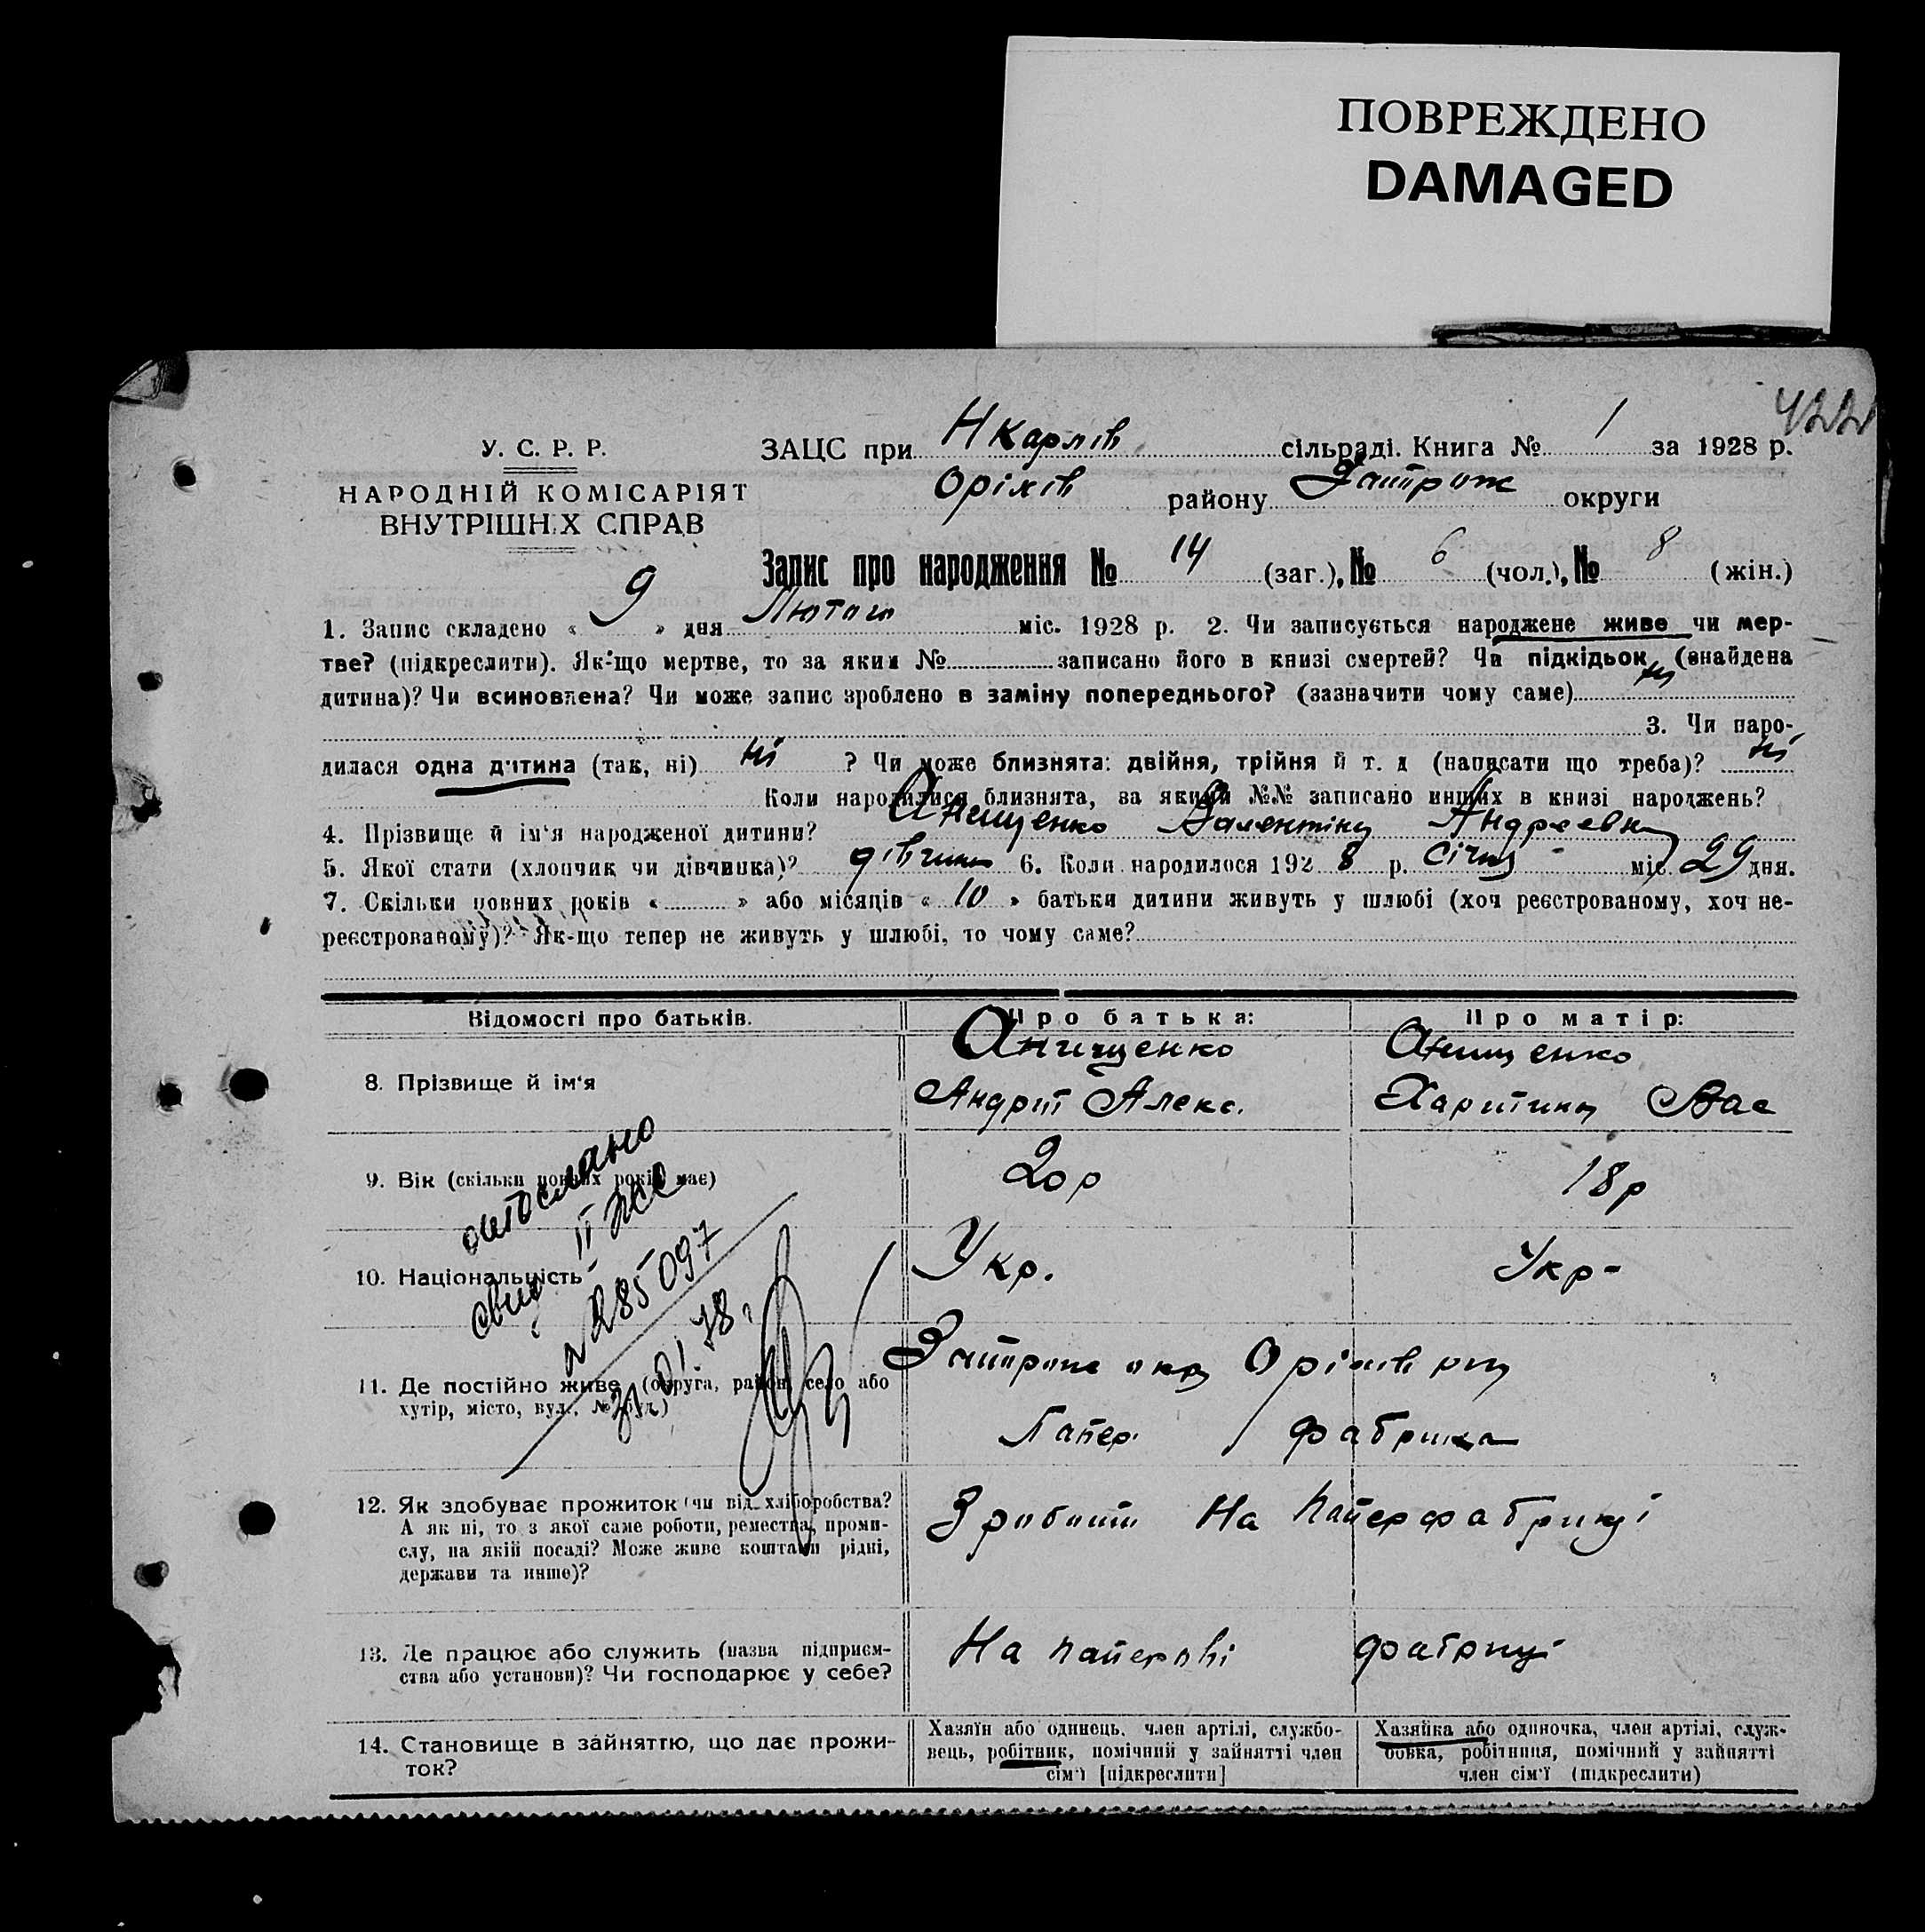 ПОВРЕЖДЕНО
DAMAGED
422
У. С. Р. Р.
НАРОДНІЙ КОМІСАРІЯТ
ВНУТРІШНІХ СПРАВ
ЗАЦС при Нкарлів сільраді. Книга № 1 за 1928 р.
Оріхів району Запрож округи
Запис про народження № 14 (заг.), № 6 (чол.), № 8 (жін.)
1. Запис складено « 9 » дня Лютого міс. 1928 р. 2. Чи записується народжене живе чи мер-
тве? (підкреслити). Як-що мертве, то за яким № записано його в книзі смертей? Чи підкідьок (знайдена
дитина)? Чи всиновлена? Чи може запис зроблено в заміну попереднього? (зазначити чому саме) ні
3. Чи наро-
дилася одна дитина (так, ні) ні ? Чи може близнята: двійня, трійня й т. д (написати що треба)? ні
Коли народилися близнята, за якими №№ записано инших в книзі народжень?
4. Прізвище й ім'я народженої дитини? Анищенко Валентину Андреевн
5. Якої стати (хлопчик чи дівчинка)? дівчина 6. Коли народилося 192 8 р. січня міс. 29 дня.
7. Скільки повних років « » або місяців « 10 » батьки дитини живуть у шлюбі (хоч реєстрованому, хоч не-
реєстрованому)? Як-що тепер не живуть у шлюбі, то чому саме?
Відомості про батьків. Про батька: Про матір:
8. Прізвище й ім'я Анищенко Андрій Алекс. Анищенко Харитина Вас
9. Вік (скільки повних років має) 20 р 18 р
10. Національність Укр. Укр-
11. Де постійно живе (округа, район, село або
хутір, місто, вул., № буд.) Запрож окр Оріхів рну
Папер фабрика
12. Як здобуває прожиток (чи від хліборобства?
А як ні, то з якої саме роботи, ремества, проми-
слу, на якій посаді? Може живе коштами рідні,
держави та инше)? З роботи На паперфабриці
13. Де працює або служить (назва підприєм-
ства або установи)? Чи господарює у себе? На паперові фабриці
14. Становище в зайняттю, що дає прожи-
ток?
Хазяїн або одинець, член артілі, службо-
вець, робітник, помічний у зайнятті член
сім'ї [підкреслити]
Хазяйка або одиночка, член артілі, служ-
бовка, робітниця, помічний у зайнятті
член сім'ї (підкреслити)
отослано
свид II ЖС
№ 285097
31.01.78г